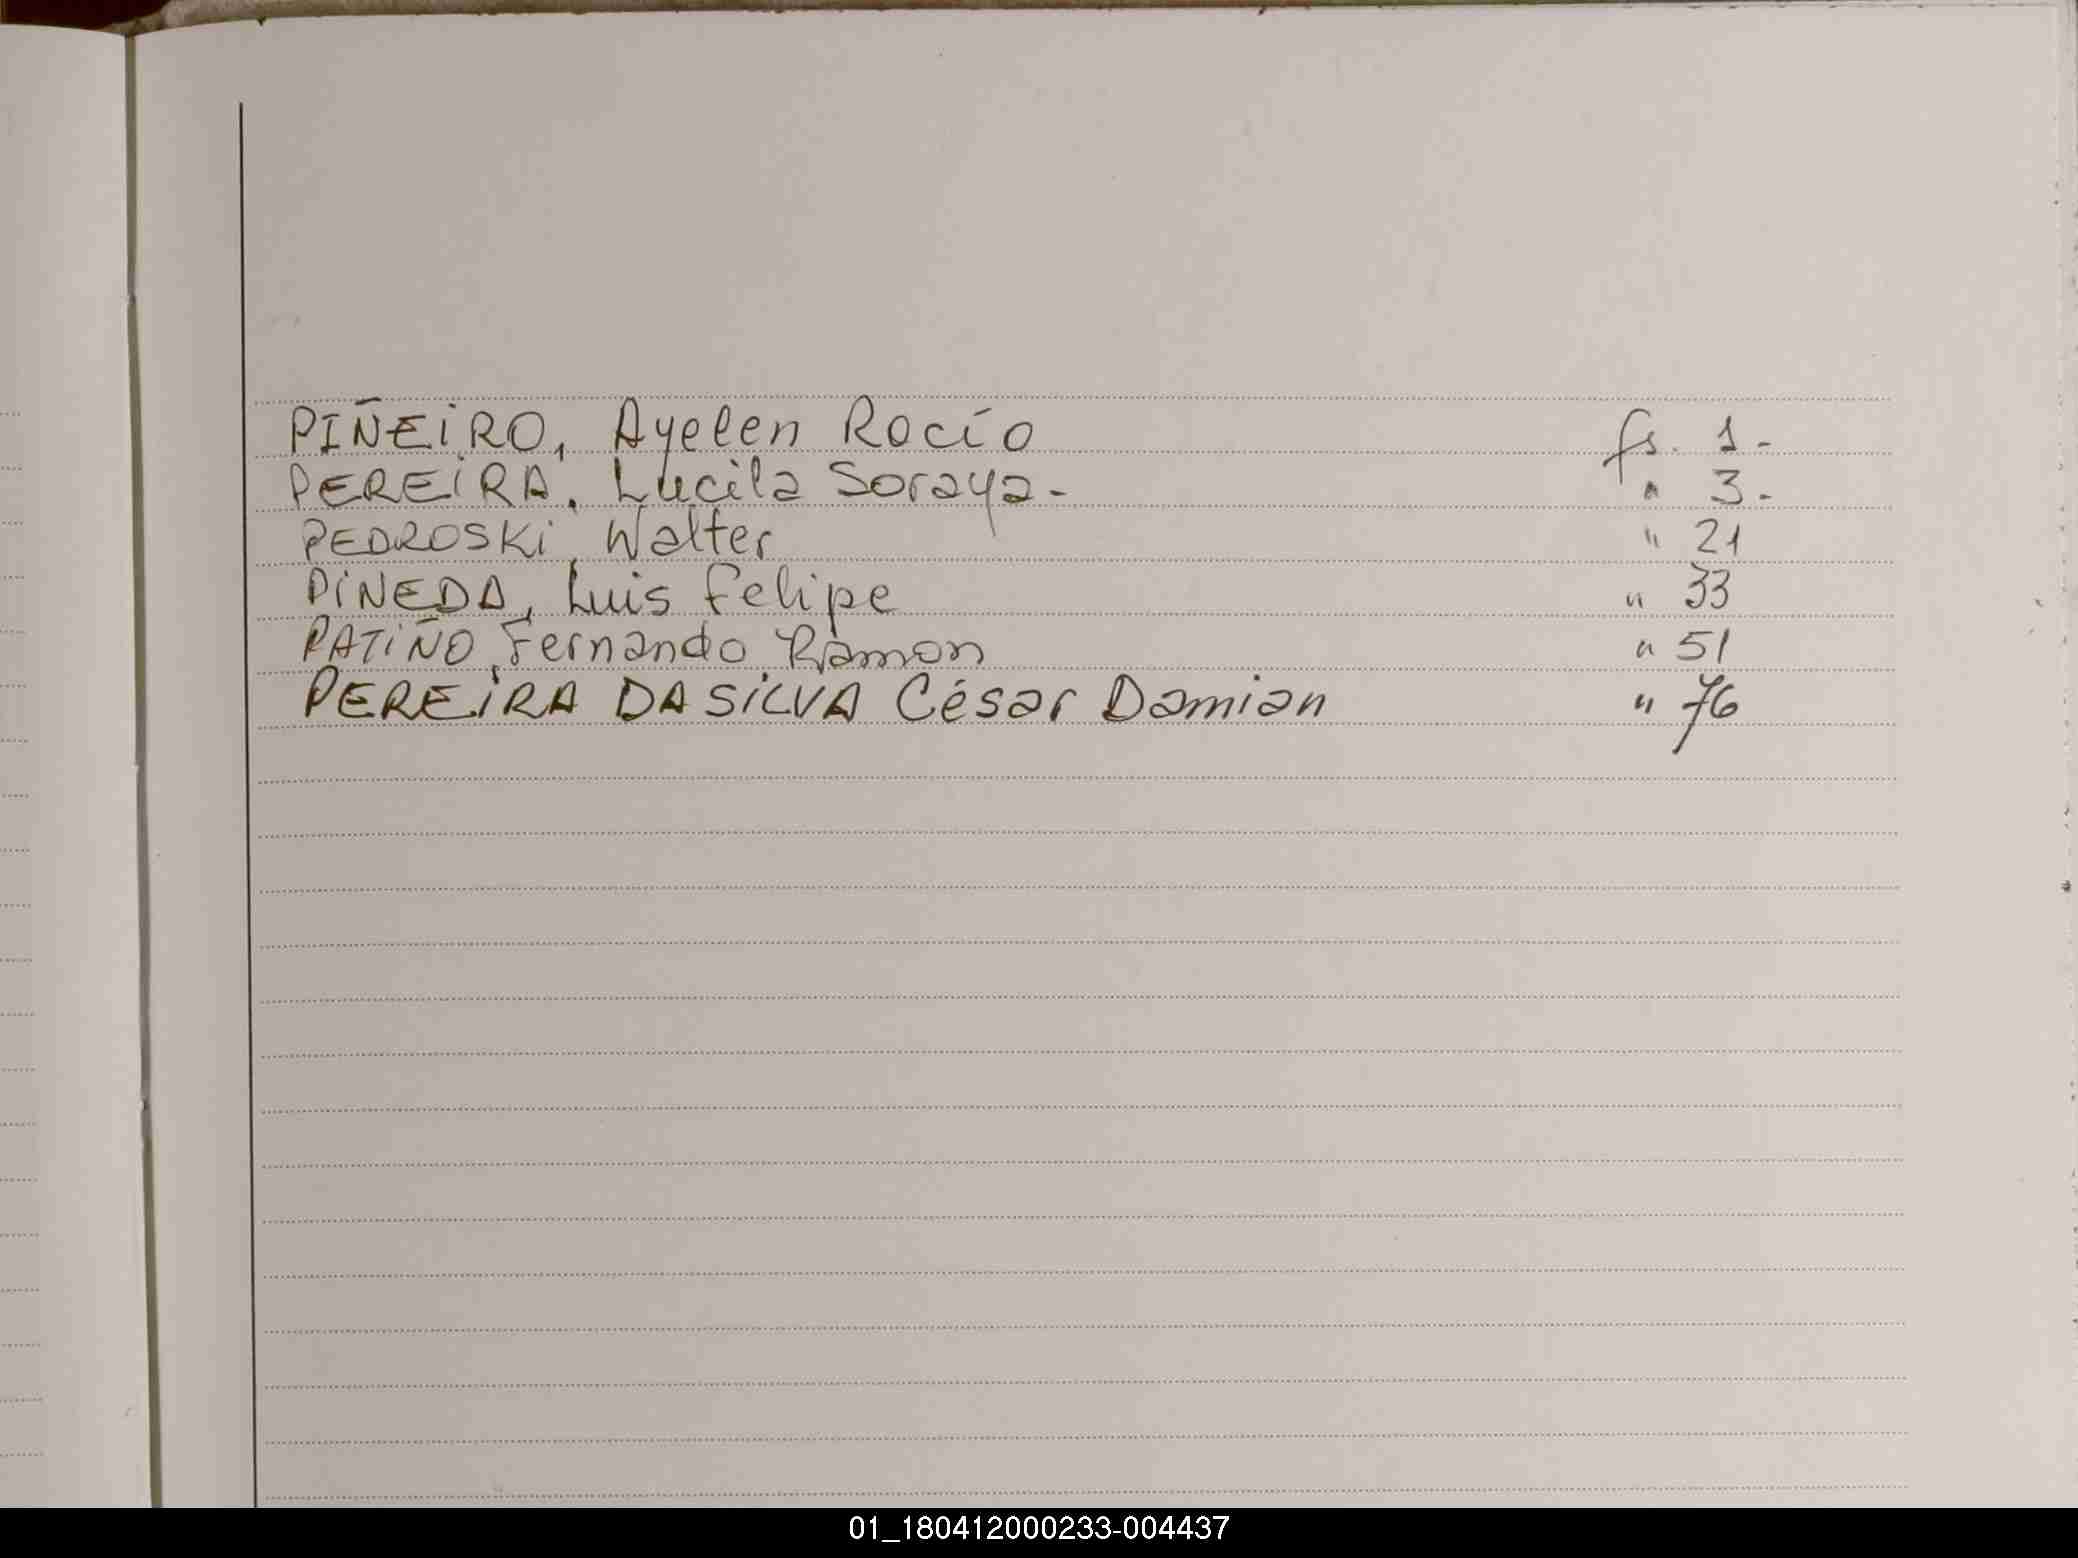 PIÑEIRO, Ayelen Rocío fs. 1.-
PEREIRA, Lucila Soraya.- " 3.-
PEDROSKI, Walter " 21
PINEDA, Luis Felipe " 33
PATIÑO, Fernando Ramon " 51
PEREIRA DA SILVA César Damian " 76
01_180412000233-004437